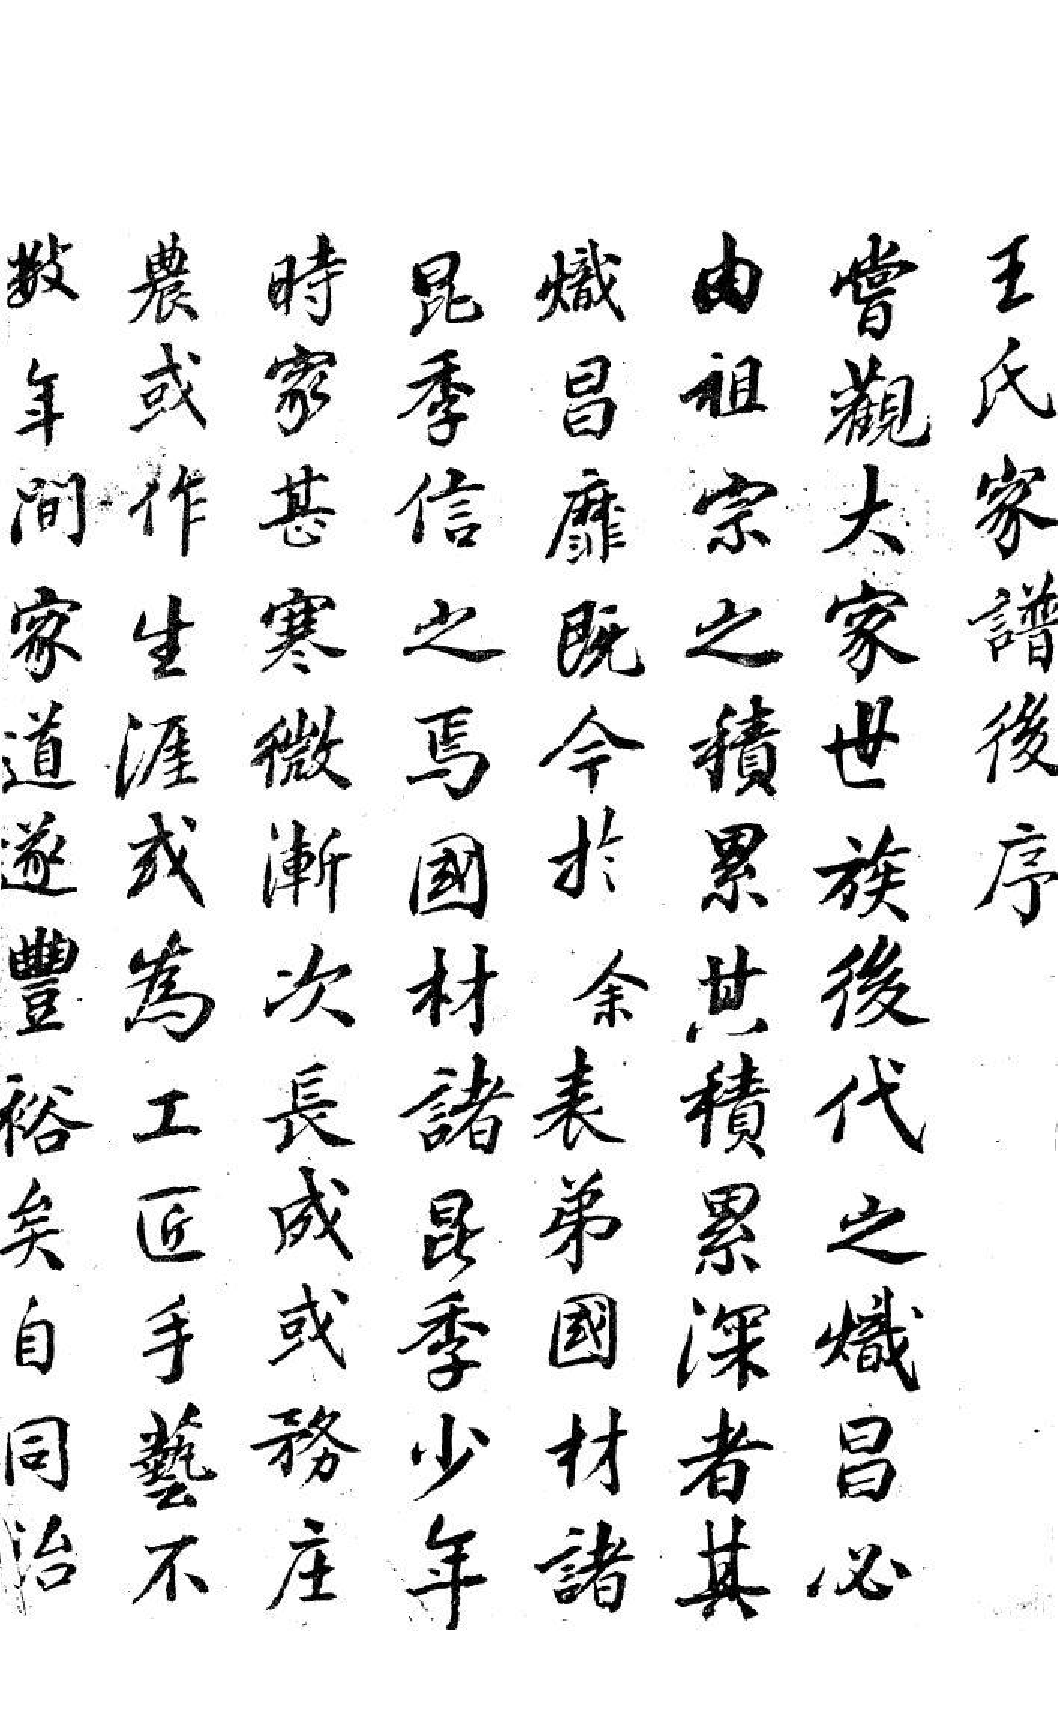 王氏家譜後序
嘗觀大家世族後代之熾昌必
由祖宗之積累其積累深者其
熾昌靡既今於余表弟國材諸
昆季信之焉國材諸昆季少年
時家甚寒微漸次長成或務庄
農或作生涯或為工匠手藝不
数年间家道遂豐裕矣自同治